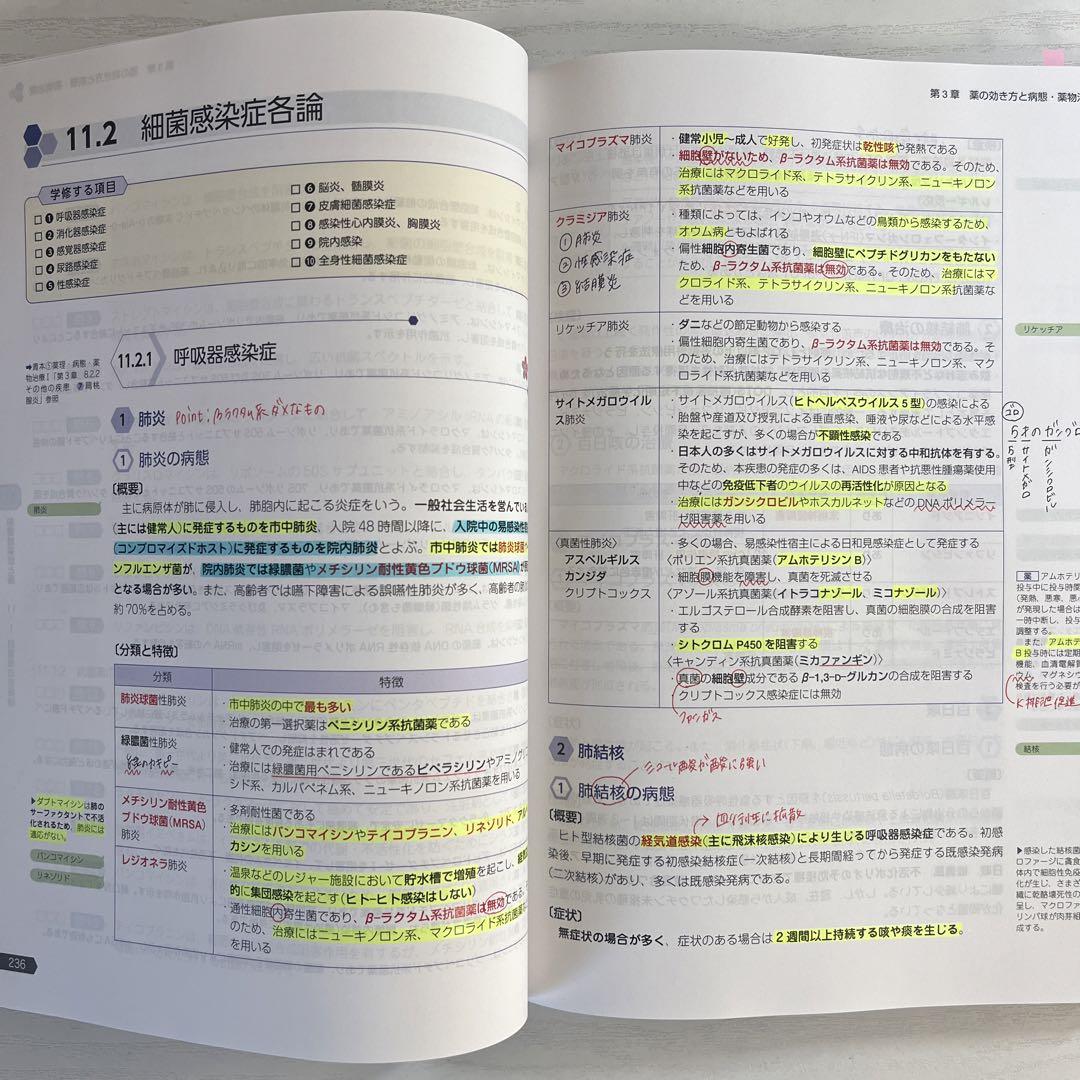 11.2 細菌感染症各論
学修する項目
□ ❶ 呼吸器感染症
□ ❷ 消化器感染症
□ ❸ 感覚器感染症
□ ❹ 尿路感染症
□ ❺ 性感染症
□ ❻ 脳炎、髄膜炎
□ ❼ 皮膚細菌感染症
□ ❽ 感染性心内膜炎、胸膜炎
□ ❾ 院内感染
□ ❿ 全身性細菌感染症
11.2.1 呼吸器感染症
➡青本①薬理・病態・薬
物治療Ⅰ「第3章 8.2.2
その他の疾患 ❼扁桃
腺炎」参照
1 肺炎 point:βラクタム系ダメなもの
① 肺炎の病態
〔概要〕
肺炎
主に病原体が肺に侵入し、肺胞内に起こる炎症をいう。一般社会生活を営んでいる
(主には健常人)に発症するものを市中肺炎、入院48時間以降に、入院中の易感染性
(コンプロマイズドホスト)に発症するものを院内肺炎とよぶ。市中肺炎では肺炎球菌
ンフルエンザ菌が、院内肺炎では緑膿菌やメチシリン耐性黄色ブドウ球菌(MRSA)が
となる場合が多い。また、高齢者では嚥下障害による誤嚥性肺炎が多く、高齢者の
約70%を占める。
〔分類と特徴〕
分類 特徴
肺炎球菌性肺炎
・市中肺炎の中で最も多い
・治療の第一選択薬はペニシリン系抗菌薬である
緑膿菌性肺炎
・健常人での発症はまれである
・治療には緑膿菌用ペニシリンであるピペラシリンやアミノグリコ
シド系、カルバペネム系、ニューキノロン系抗菌薬を用いる
メチシリン耐性黄色
ブドウ球菌(MRSA)
肺炎
・多剤耐性菌である
・治療にはバンコマイシンやテイコプラニン、リネゾリド、アル
カシンを用いる
▶ダプトマイシンは肺の
サーファクタントで不活
化されるため、肺炎には
適応がない。
バンコマイシン
リネゾリド
レジオネラ肺炎
・温泉などのレジャー施設において貯水槽で増殖を起こし、
的に集団感染を起こす(ヒト-ヒト感染はしない)
・通性細胞内寄生菌であり、β-ラクタム系抗菌薬は無効である。
のため、治療にはニューキノロン系、マクロライド系抗菌薬
を用いる
236
第3章 薬の効き方と病態・薬物
マイコプラズマ肺炎
・健常小児~成人で好発し、初発症状は乾性咳や発熱である
・細胞壁がないため、β-ラクタム系抗菌薬は無効である。そのため、
治療にはマクロライド系、テトラサイクリン系、ニューキノロン
系抗菌薬などを用いる
クラミジア肺炎
① 肺炎
② 性感染症
③ 結膜炎
・種類によっては、インコやオウムなどの鳥類から感染するため、
オウム病ともよばれる
・偏性細胞内寄生菌であり、細胞壁にペプチドグリカンをもたない
ため、β-ラクタム系抗菌薬は無効である。そのため、治療にはマ
クロライド系、テトラサイクリン系、ニューキノロン系抗菌薬な
どを用いる
リケッチア肺炎
・ダニなどの節足動物から感染する
・偏性細胞内寄生菌であり、β-ラクタム系抗菌薬は無効である。そ
のため、治療にはテトラサイクリン系、ニューキノロン系、マク
ロライド系抗菌薬などを用いる
リケッチア
サイトメガロウイル
ス肺炎
・サイトメガロウイルス(ヒトヘルペスウイルス5型)の感染による
・胎盤や産道及び授乳による垂直感染、唾液や尿などによる水平感
染を起こすが、多くの場合が不顕性感染である
・日本人の多くはサイトメガロウイルスに対する中和抗体を有する。
そのため、本疾患の発症の多くは、AIDS患者や抗悪性腫瘍薬使用
中などの免疫低下者のウイルスの再活性化が原因となる
・治療にはガンシクロビルやホスカルネットなどのDNAポリメラー
ゼ阻害薬を用いる
ゴロ
5才のガングロ
5型
サイトメガロ
ガンシクロビル
〈真菌性肺炎〉
アスペルギルス
カンジダ
クリプトコックス
・多くの場合、易感染性宿主による日和見感染症として発症する
〈ポリエン系抗真菌薬(アムホテリシンB)〉
・細胞膜機能を障害し、真菌を死滅させる
〈アゾール系抗真菌薬(イトラコナゾール、ミコナゾール)〉
・エルゴステロール合成酵素を阻害し、真菌の細胞膜の合成を阻害
する
・シトクロムP450を阻害する
〈キャンディン系抗真菌薬(ミカファンギン)〉
・真菌の細胞壁成分であるβ-1,3-D-グルカンの合成を阻害する
・クリプトコックス感染症には無効
ファンガス
薬 アムホテ
投与中に投与時間
(発熱、悪寒、悪
が発現した場合は
一時中断し、投与
調整する。
また、アムホテ
B投与時には定期
機能、血清電解
ウム、マグネシウ
検査を行う必要が
K排泄促進
2 肺結核
ミコで酸が酸に強い
① 肺結核の病態
〔概要〕 → 四行性に拡散
結核
ヒト型結核菌の経気道感染(主に飛沫核感染)により生じる呼吸器感染症である。初感
染後、早期に発症する初感染結核症(一次結核)と長期間経ってから発症する既感染発病
(二次結核)があり、多くは既感染発病である。
〔症状〕
無症状の場合が多く、症状のある場合は2週間以上持続する咳や痰を生じる。
▶感染した結核菌
ロファージに貪食
体内で細胞性免疫
化が生じ、さまざ
織に乾酪壊死性の
呈し、マクロファー
リンパ球が肉芽組
成する。